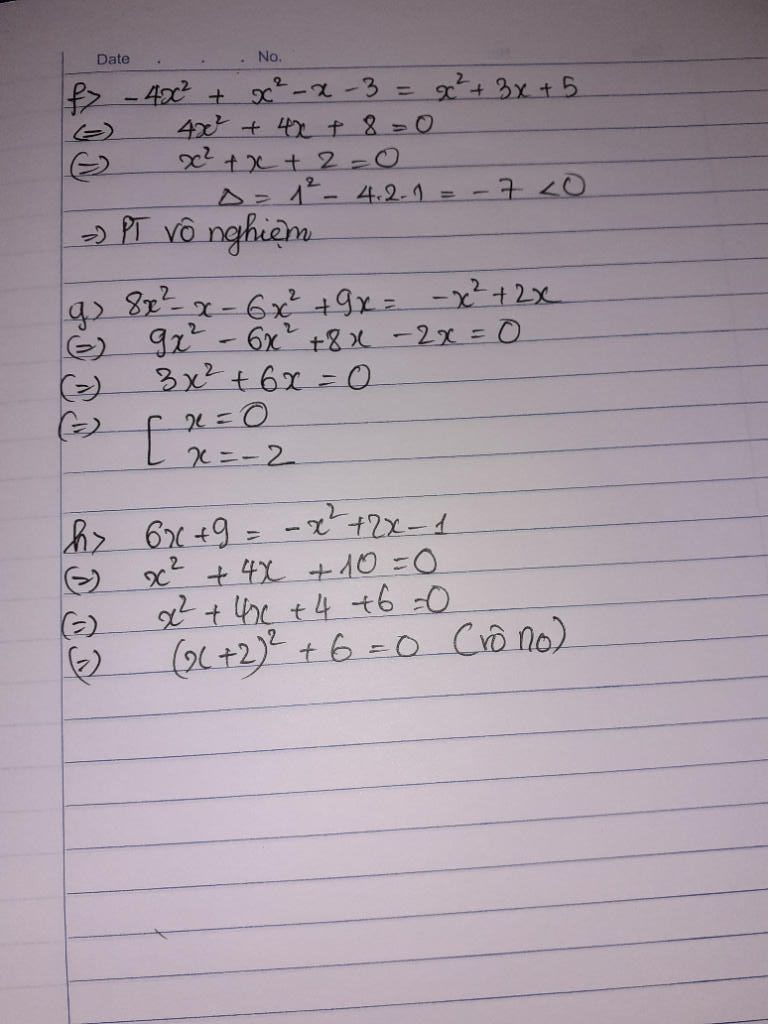 Date . . . No.
f> -4x² + x² - x - 3 = x² + 3x + 5
(=) 4x² + 4x + 8 = 0
(=) x² + x + 2 = 0
Δ = 1² - 4.2.1 = -7 < 0
=> PT vô nghiệm
g> 8x² - x - 6x² + 9x = -x² + 2x
(=) 9x² - 6x² + 8x - 2x = 0
(=) 3x² + 6x = 0
(=) [ x = 0
x = -2
h> 6x + 9 = -x² + 2x - 1
(=) x² + 4x + 10 = 0
(=) x² + 4x + 4 + 6 = 0
(=) (x + 2)² + 6 = 0 (vô no)